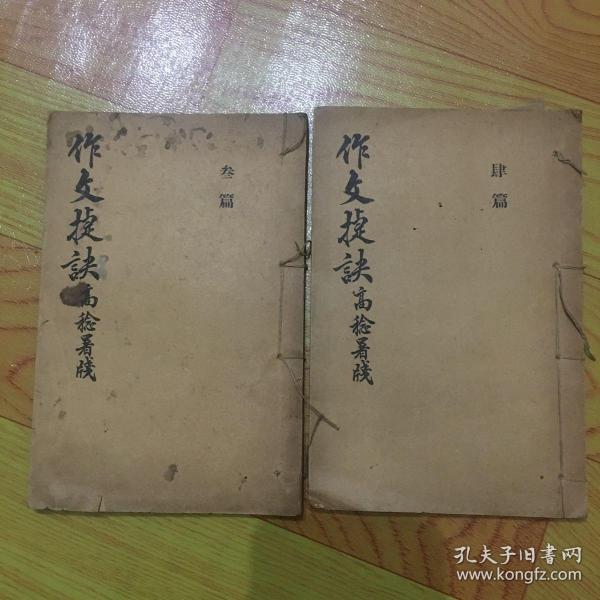 作文捷訣
高稔署牋
叁篇
作文捷訣
高稔署牋
肆篇
孔夫子旧书网
www.kongfz.com